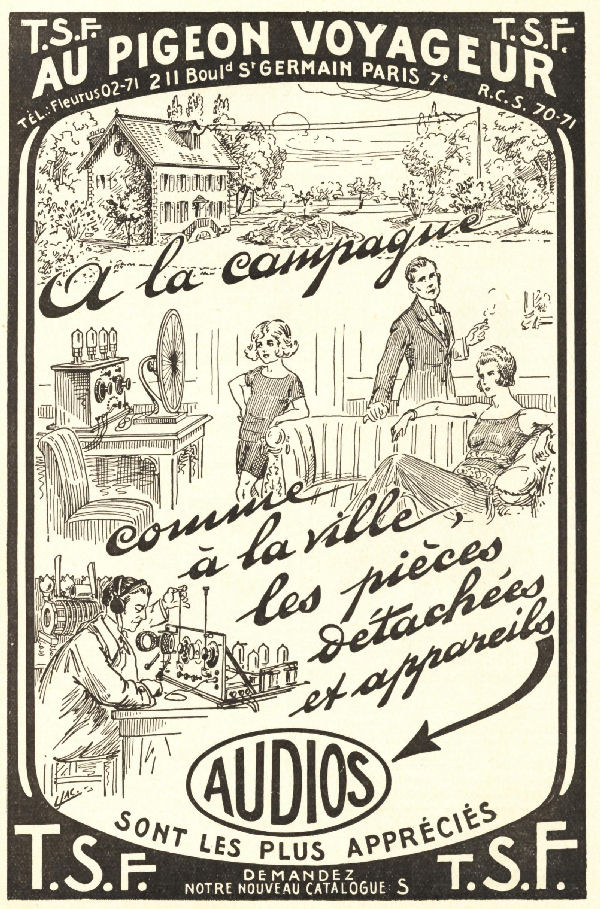 T.S.F.
T.S.F.
AU PIGEON VOYAGEUR
TÉL.: Fleurus 02-71 211 Boulᵈ Sᵗ GERMAIN PARIS 7ᵉ R.C.S. 70-71
A la campagne
comme
à la ville,
les pièces
détachées
et appareils
AUDIOS
SONT LES PLUS APPRÉCIÉS
T.S.F.
T.S.F.
DEMANDEZ
NOTRE NOUVEAU CATALOGUE: S